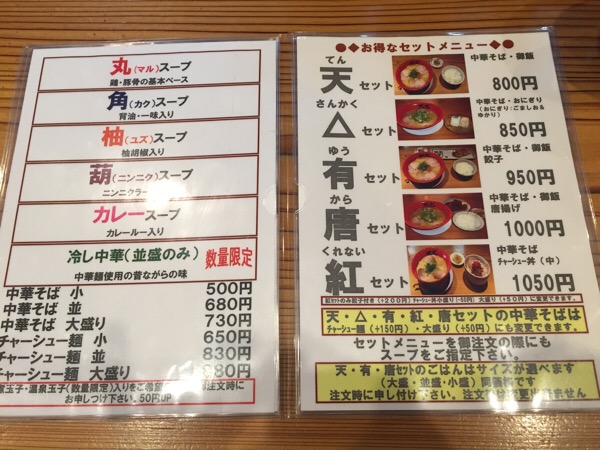 丸(マル)スープ
鶏・豚骨の基本ベース
角(カク)スープ
背油・一味入り
柚(ユズ)スープ
柚胡椒入り
葫(ニンニク)スープ
ニンニクラー
カレースープ
カレールー入り
冷し中華(並盛のみ) 数量限定
中華麺使用の昔ながらの味
中華そば 小 500円
中華そば 並 680円
中華そば 大盛り 730円
チャーシュー麺 小 650円
チャーシュー麺 並 830円
チャーシュー麺 大盛り 880円
玉子・温泉玉子(数量限定)入りをご希望 注文時に
お申しつけ下さい。50円UP
●◆お得なセットメニュー◆●
てん
天セット
中華そば・御飯
800円
さんかく
△セット
中華そば・おにぎり
(おにぎり:ごましお&
ゆかり)
850円
ゆう
有セット
中華そば・御飯
餃子
950円
から
唐セット
中華そば・御飯
唐揚げ
1000円
くれない
紅セット
中華そば
チャーシュー丼(中)
1050円
紅セットのみ餃子付き(+200円)チャーシュー丼小盛り(-50円)大盛り(+50円)に変更できます。
天・△・有・紅・唐セットの中華そばは
チャーシュー麺(+150円)・大盛り(+50円)にも変更できます。
セットメニューを御注文の際にも
スープをご指定下さい。
天・有・唐セットのごはんはサイズが選べます
(大盛・並盛・小盛)同価格です
注文時に申しつけ下さい。注文後は変更出来ません